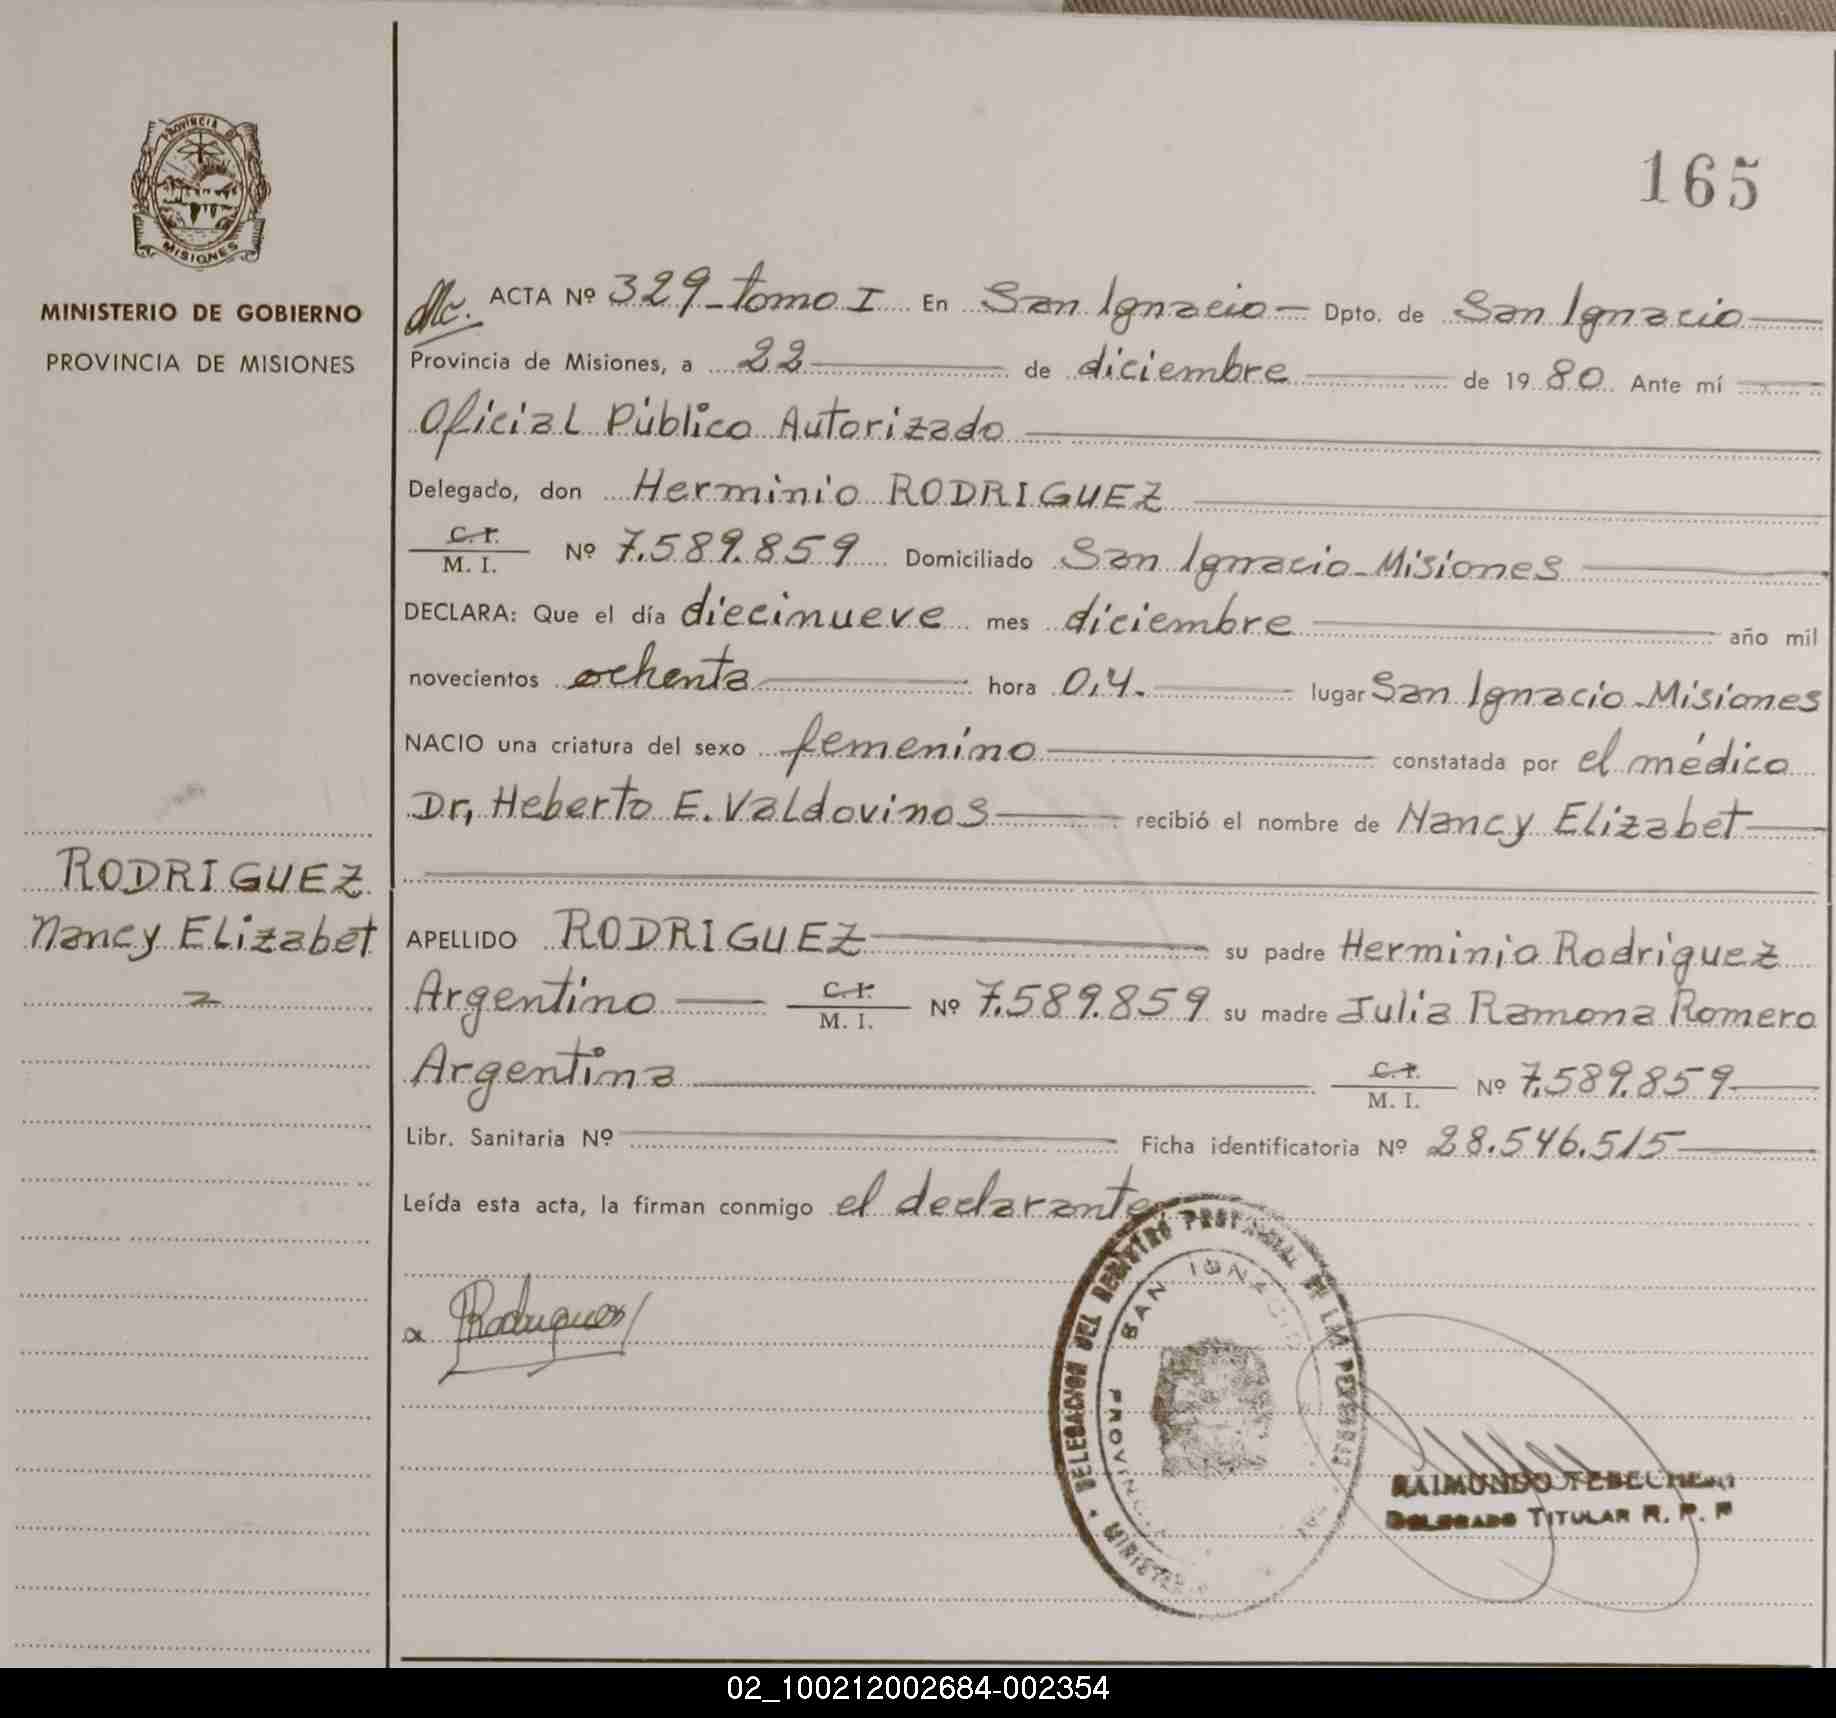 PROVINCIA
MISIONES
MINISTERIO DE GOBIERNO
PROVINCIA DE MISIONES
165
ACTA Nº 329-tomo I En San Ignacio- Dpto. de San Ignacio
Provincia de Misiones, a 22 de diciembre de 1980 Ante mí
Oficial Público Autorizado
Delegado, don Herminio RODRIGUEZ
C. I.
M. I. Nº 7.589.859 Domiciliado San Ignacio-Misiones
DECLARA: Que el día diecinueve mes diciembre año mil
novecientos ochenta hora 0,4. lugar San Ignacio-Misiones
NACIO una criatura del sexo femenino constatada por el médico
Dr, Heberto E. Valdovinos recibió el nombre de Nancy Elizabet
RODRIGUEZ
Nancy Elizabet
APELLIDO RODRIGUEZ su padre Herminio Rodriguez
Argentino C. I. M. I. Nº 7.589.859 su madre Julia Ramona Romero
Argentina C. I. M. I. Nº 7.589.859
Libr. Sanitaria Nº Ficha identificatoria Nº 28.546.515
Leída esta acta, la firman conmigo el declarante
Rodriguez
DELEGACION DEL REGISTRO PROVINCIAL DE LAS PERSONAS
SAN IGNACIO
RAIMUNDO
DELEGADO TITULAR R. P. P
02_100212002684-002354